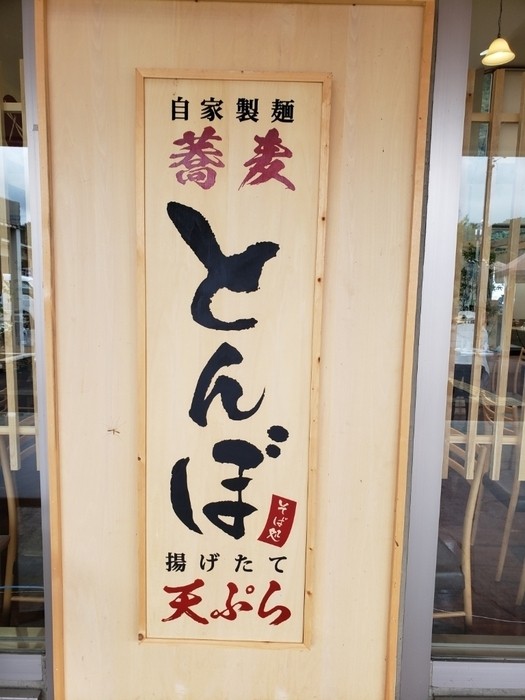 自家製麺
蕎麦
とんぼ
そば処
揚げたて
天ぷら